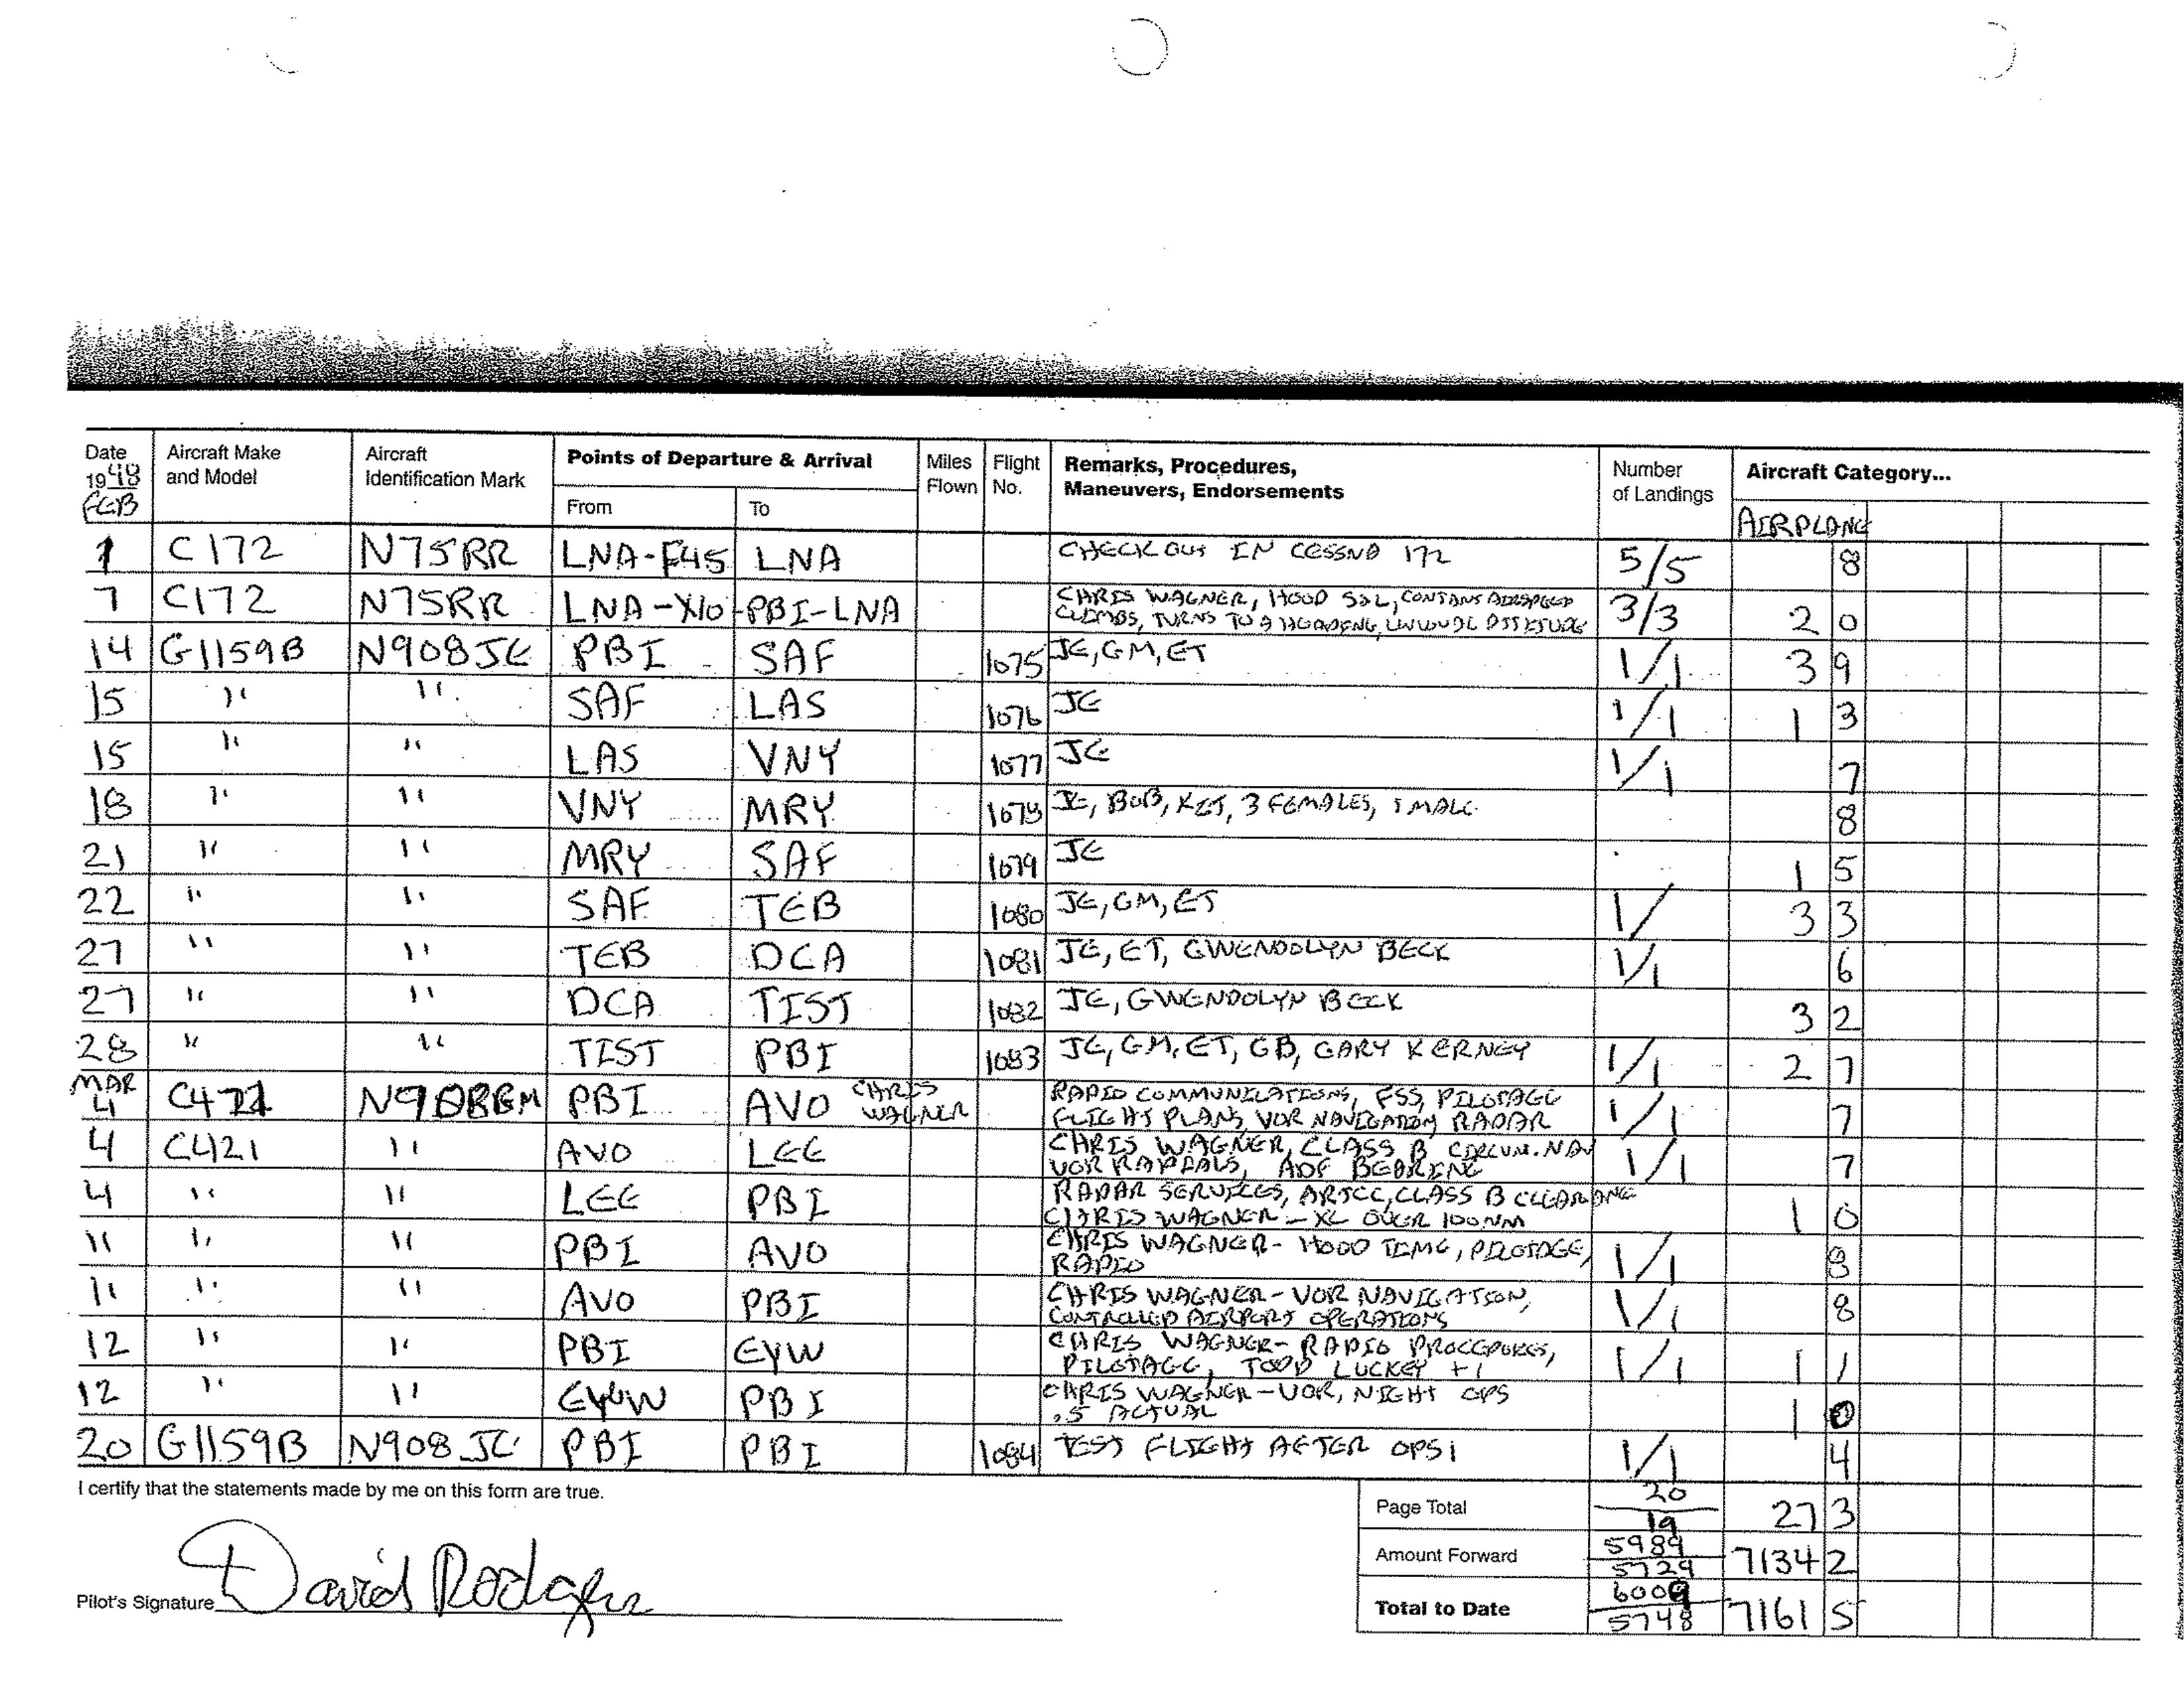 Date Aircraft Make Aircraft Points of Departure & Arrival Miles Flight Remarks, Procedures, Number Aircraft Category...
1998 and Model Identification Mark From To Flown No. Maneuvers, Endorsements of Landings
FEB AIRPLANE
1 C172 N75RR LNA-F45 LNA CHECK OUT IN CESSNA 172 5/5 8
7 C172 N75RR LNA-X10-PBI-LNA CHRIS WAGNER, HOOD S&L, CONSTANT AIRSPEED 3/3 2 0
CLIMBS, TURNS TO A HEADING, UNUSUAL ATTITUDE
14 G1159B N908JE PBI SAF 1075 JE, GM, ET 1/1 3 9
15 " " SAF LAS 1076 JE 1/1 1 3
15 " " LAS VNY 1077 JE 1/1 7
18 " " VNY MRY 1078 JE, BOB, KIT, 3 FEMALES, 1 MALE 8
21 " " MRY SAF 1079 JE 1 5
22 " " SAF TEB 1080 JE, GM, ET 1/ 3 3
27 " " TEB DCA 1081 JE, ET, GWENDOLYN BECK 1/1 6
27 " " DCA TIST 1082 JE, GWENDOLYN BECK 3 2
28 " " TIST PBI 1083 JE, GM, ET, GB, GARY KERNEY 1/1 2 7
MAR
4 C421 N908GM PBI AVO CHRIS WAGNER RADIO COMMUNICATIONS, FSS, PILOTAGE 1/1 7
FLIGHT PLANS, VOR NAVIGATION RADAR
4 C421 " AVO LEE CHRIS WAGNER, CLASS B CIRCUM. NAV 1/1 7
VOR RADIALS, ADF BEARING
4 " " LEE PBI RADAR SERVICES, ARTCC, CLASS B CLEARANCE 1 0
CHRIS WAGNER - XC OVER 100NM
11 " " PBI AVO CHRIS WAGNER - HOOD TIME, PILOTAGE, 1/1 8
RADIO
11 " " AVO PBI CHRIS WAGNER - VOR NAVIGATION, 1/1 8
CONTROLLED AIRPORT OPERATIONS
12 " " PBI EYW CHRIS WAGNER - RADIO PROCEDURES, 1/1 1 1
PILOTAGE, TODD LUCKEY +1
12 " " EYW PBI CHRIS WAGNER - VOR, NIGHT OPS 1 0
.5 ACTUAL
20 G1159B N908JE PBI PBI 1084 TEST FLIGHT AFTER OPS 1 1/1 4
I certify that the statements made by me on this form are true.
Page Total 20/19 27 3
Amount Forward 5989/5729 7134 2
Pilot's Signature David Rodgers
Total to Date 6009/5748 7161 5